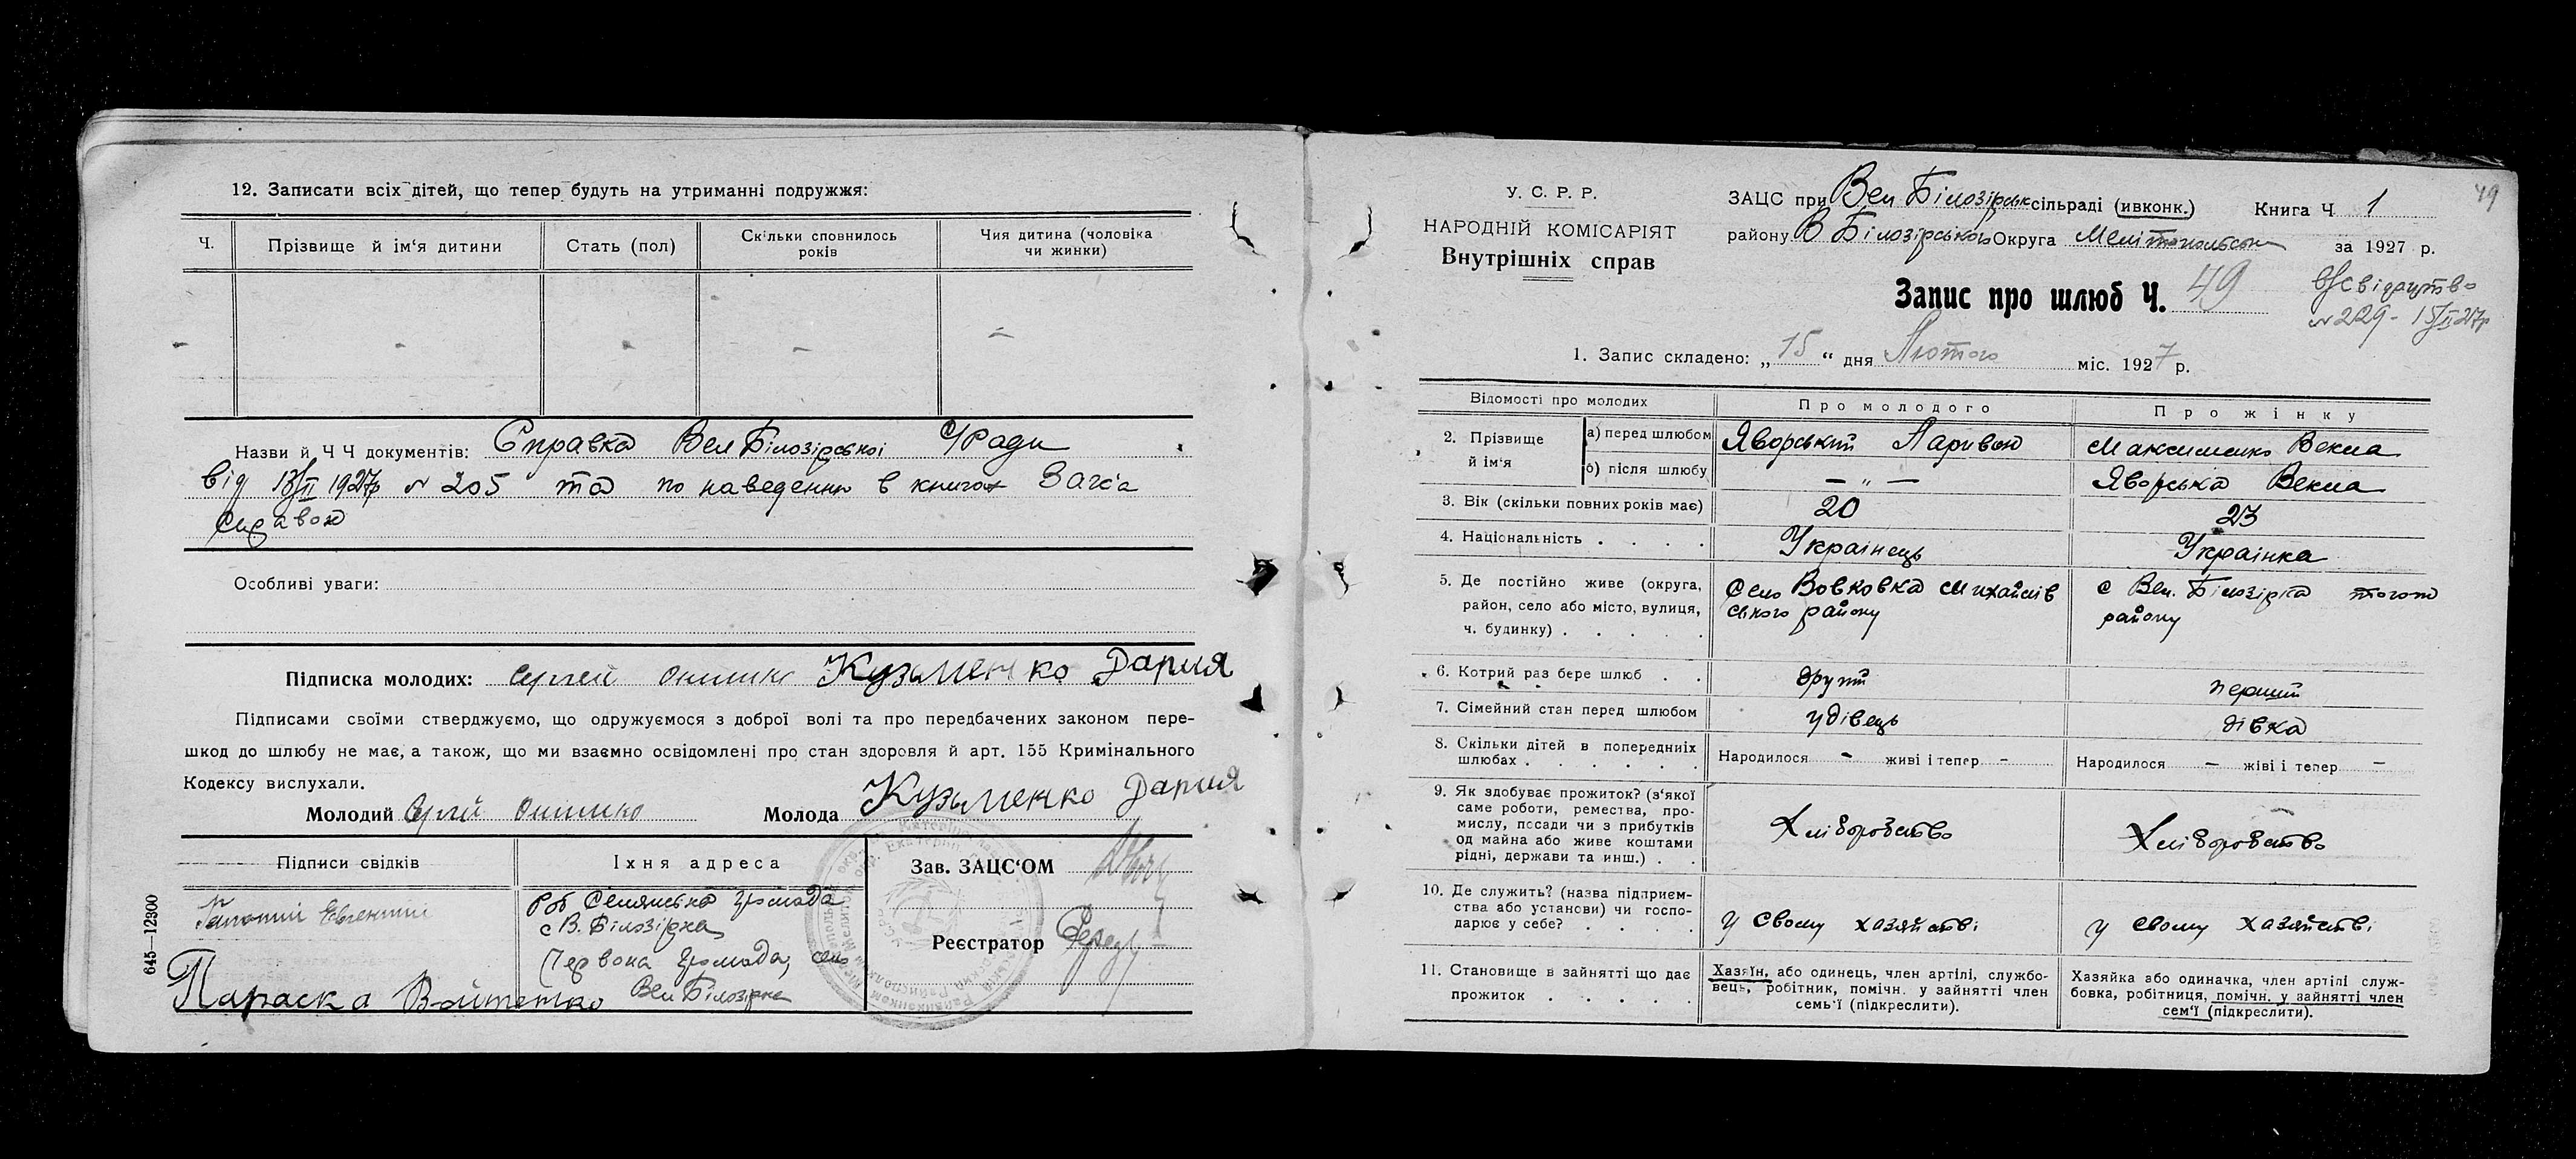 12. Записати всіх дітей, що тепер будуть на утриманні подружжя:
Ч. Прізвище й ім‘я дитини Стать (пол) Скільки сповнилось років Чия дитина (чоловіка чи жинки)
Назви й Ч Ч документів: Справка Вел Білозірської С/Ради
від 13/II 1927р № 205 та по наведенню в книгах Загс'а
справок
Особливі уваги:
Підписка молодих: Сергей Онишко Кузьменко Дария
Підписами своїми стверджуємо, що одружуємося з доброї волі та про передбачених законом пере-
шкод до шлюбу не має, а також, що ми взаємно освідомлені про стан здоровля й арт. 155 Кримінального
Кодексу вислухали.
Молодий Сергей Онишко Молода Кузьменко Дария
Підписи свідків Їхня адреса
Евгений
Роб Селянська Громада
с В. Білозірка
Червона Громада, село
Вел Білозірка
Параска Войтенко
Зав. ЗАЦС‘ОМ
Реєстратор
645—12300
У. С. Р. Р.
НАРОДНІЙ КОМІСАРІЯТ
Внутрішніх справ
ЗАЦС при Вел Білозірськ сільраді (ивконк.) Книга Ч 1
49
району В Білозірського Округа Мелітопольськ за 1927 р.
Запис про шлюб Ч. 49
в/свідоцтво
№ 229 - 15/II 27р
1. Запис складено: „15“ дня Лютого міс. 1927 р.
Відомості про молодих Про молодого Про жінку
2. Прізвище й ім‘я а) перед шлюбом Яворський Ларивон Максименко Векла
б) після шлюбу — „ — Яворська Векла
3. Вік (скільки повних років має) 20 23
4. Національність Українець Українка
5. Де постійно живе (округа, район, село або місто, вулиця, ч. будинку)
Село Вовковка Михайлів
ського району
с Вел. Білозірка того ж
району
6. Котрий раз бере шлюб другий перший
7. Сімейний стан перед шлюбом удівець дівка
8. Скільки дітей в попередниіх шлюбах Народилося - живі і тепер - Народилося - жіві і тепер -
9. Як здобуває прожиток? (з‘якої
саме роботи, ремества, про-
мислу, посади чи з прибутків
од майна або живе коштами
рідні, держави та инш.)
Хліборобство Хліборобство
10. Де служить? (назва підприєм-
ства або установи) чи госпо-
дарює у себе?
у свому хазяйстві у свому хазяйстві
11. Становище в зайнятті що дає
прожиток
Хазяїн, або одинець, член артілі, службо-
вець, робітник, помічн. у зайнятті член
семь‘ї (підкреслити).
Хазяйка або одиначка, член артілі служ-
бовка, робітниця, помічн. у зайнятті член
сем‘ї (підкреслити).